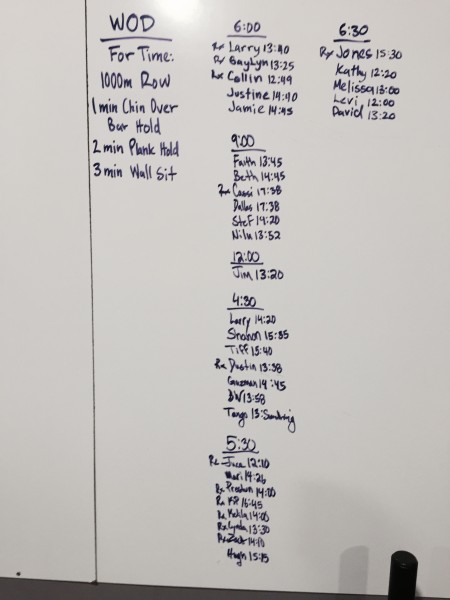 WOD
For Time:
1000m Row
1 min Chin Over
Bar Hold
2 min Plank Hold
3 min Wall Sit
6:00
Rx Larry 13:40
Rx Gaylyn 13:25
Rx Collin 12:49
Justine 14:40
Jamie 14:45
9:00
Faith 13:45
Beth 14:45
Rx Cassi 17:38
Dallas 17:38
Stef 14:20
Nilu 13:52
12:00
Jim 13:20
4:30
Larry 14:20
Shabon 15:35
Tiff 15:40
Rx Dustin 13:38
14:45
13:58
Tango 13:
5:30
Rx 12:10
14:26
Rx Preston 14:00
Rx KP 16:45
Rx 14:00
Rx Lynda 13:30
Rx Zack 14:10
Hugh 15:15
6:30
Rx Jones 15:30
Kathy 12:20
Melissa 13:00
Levi 12:00
David 13:20